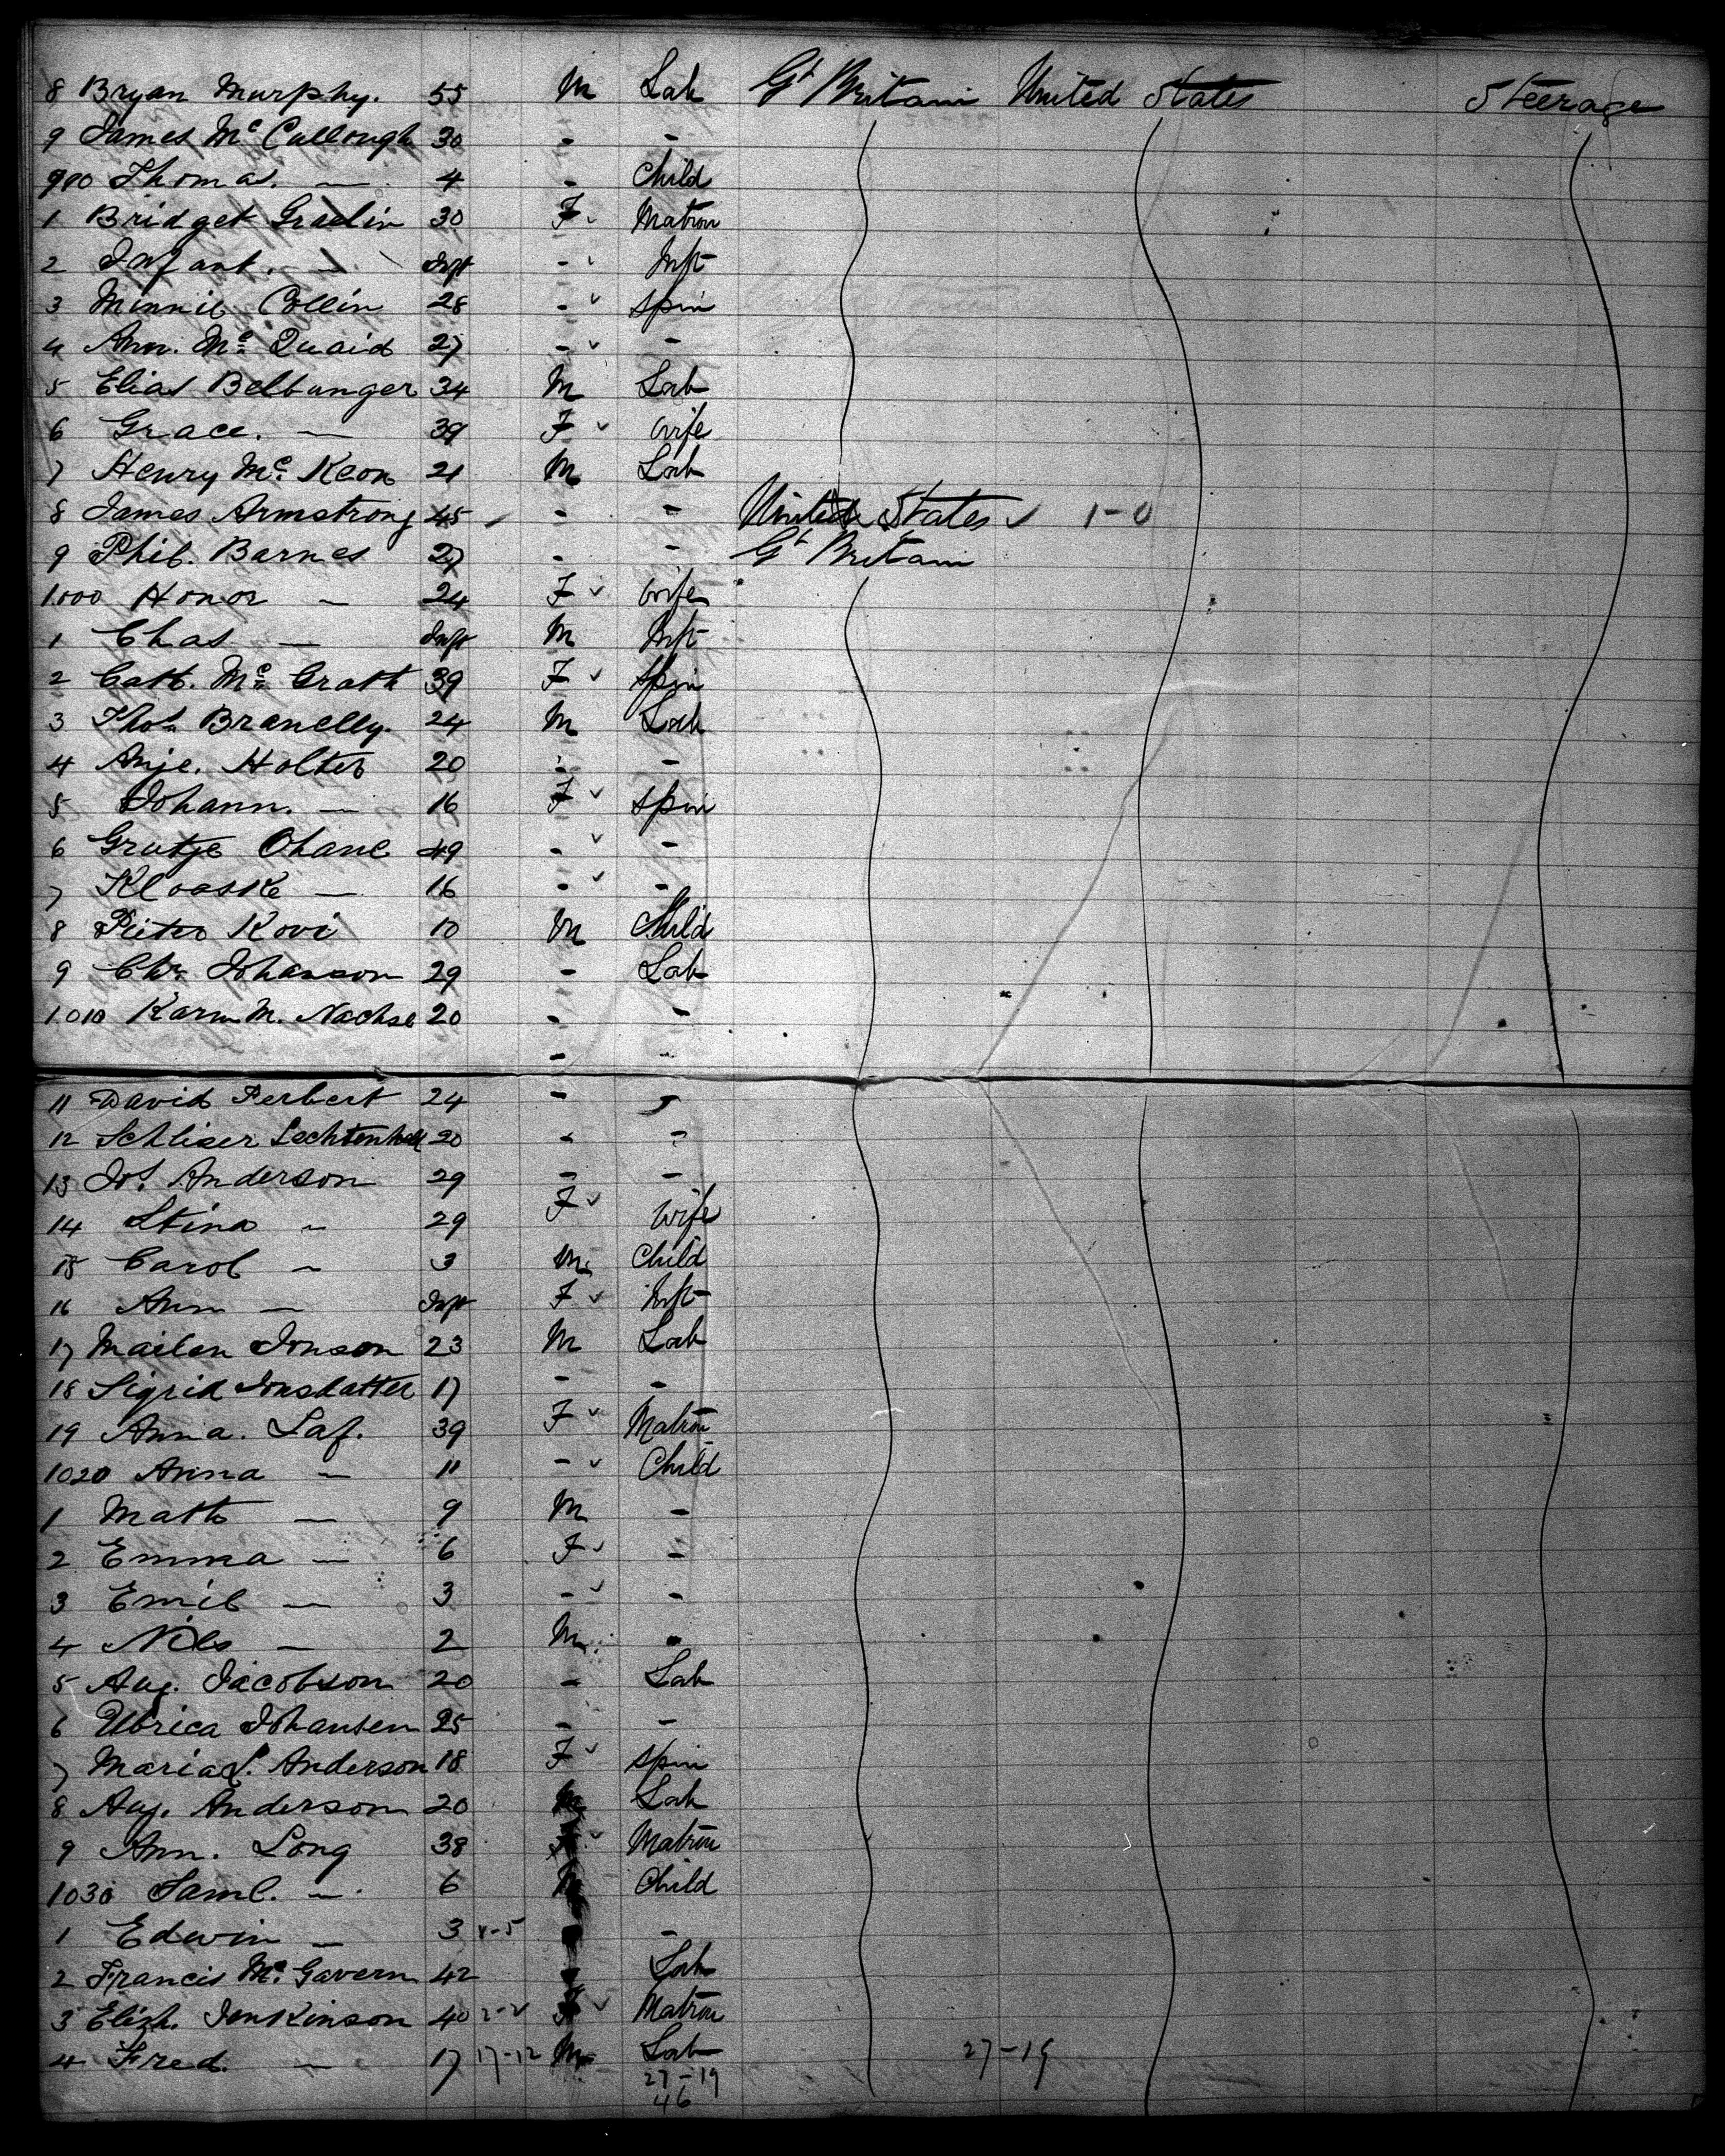 8 Bryan Murphy. 55 M Lab Gt Britain United States Steerage
9 James Mc Cullough 30 - -
990 Thomas. — 4 - Child
1 Bridget 30 F Matron
2 Infant. — Inft - Inft
3 Minnie Collin 28 - Spin
4 Ann. Mc Quaid 27 - -
5 Elias Bellanger 34 M Lab
6 Grace. — 39 F Wife
7 Henry Mc Keon 21 M Lab
8 James Armstrong 45 - - United States 1-0
9 Phil. Barnes 27 - - Gt Britain
1000 Honor — 24 F Wife
1 Chas — Inft M Inft
2 Cath. Mc Grath 39 F Spin
3 Thos Branelly. 24 M Lab
4 Anje. Holter 20 - -
5 Johann. — 16 F Spin
6 Grutje Ohane 49 - -
7 Klooske — 16 - -
8 Pieter Kovi 10 M Child
9 Chr Johanson 29 - Lab
1010 Karm M. Nachse 20 - -
- -
11 David Perbert 24 - -
12 20 - -
13 Jos. Anderson 29 - -
14 Stina — 29 F Wife
15 Carol — 3 M Child
16 Ann — Inft F Inft
17 Mailen Jonson 23 M Lab
18 Sigrid Jonsdatter 17 - -
19 Anna. Laf. 39 F Matron
1020 Anna — 11 - Child
1 Math — 9 M -
2 Emma — 6 F -
3 Emil — 3 - -
4 Nils — 2 M -
5 Aug. Jacobson 20 - Lab
6 Ulrica Johansen 25 - -
7 Maria L. Anderson 18 F Spin
8 Aug. Anderson 20 M Lab
9 Ann. Long 38 F Matron
1030 Saml. — 6 M Child
1 Edwin — 3 - -
2 Francis Mc Gavern 42 - Lab
3 Elizh. Jenkinson 40 2-2 F Matron
4 Fred. — 17 17-12 M Lab 27-19
27-19
46